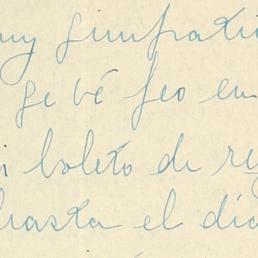 muy simpatic
se vé feo en
i boleto de re
hasta el día